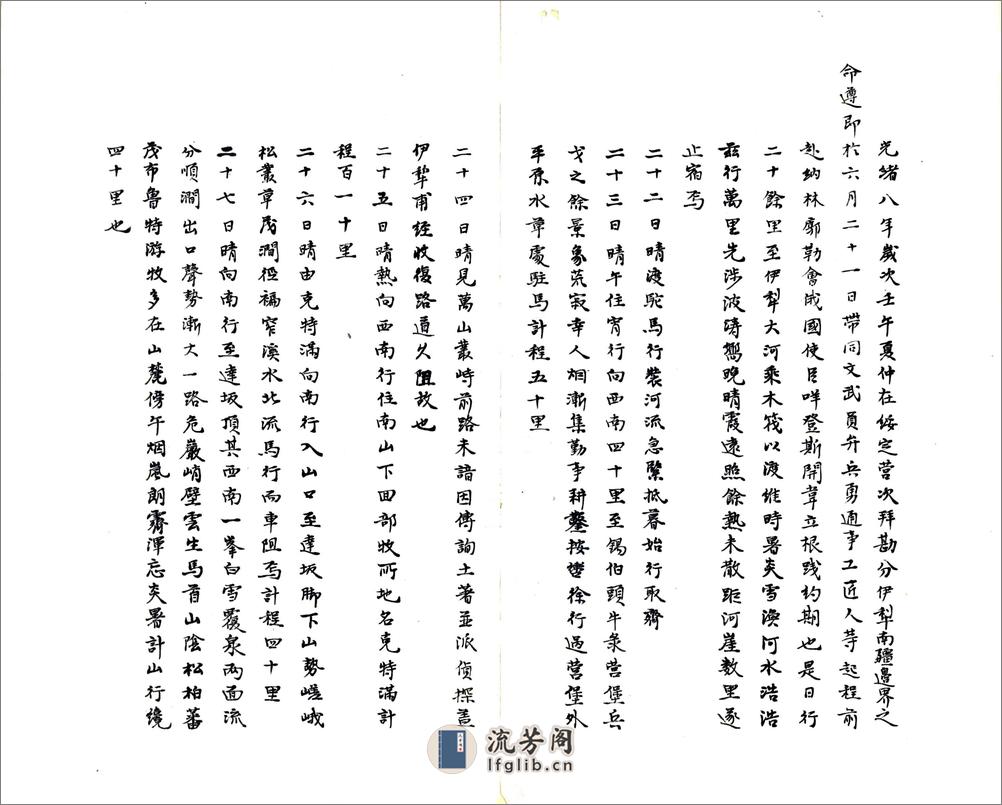 光緒八年歲次壬午夏仲在綏定營次拜勘分伊犁南疆邊界之
命遵即於六月二十一日帶同文武員弁兵勇通事工匠人等起程前
赴納林郭勒會俄國使臣咩登斯開韋立根踐約期也是日行
二十餘里至伊犁大河乘木筏以渡維時暑炎雪渙河水浩浩
茲行萬里先涉波濤嚮晚晴霞遠照餘熱未散距河崖數里遂
止宿焉
二十二日晴渡駝馬行裝河流急緊抵暮始行取齊
二十三日晴午住宵行向西南四十里至錫伯頭牛彔營堡兵
戈之餘景象荒寂幸人烟漸集勤事耕鑿按轡徐行過營堡外
平原水草處駐馬計程五十里
二十四日晴見萬山叢峙前路未諳因傳詢土著並派偵探蓋
伊犂甫經收復路道久阻故也
二十五日晴熱向西南行住南山下回部牧所地名克特滿計
程百一十里
二十六日晴由克特滿向南行入山口至達坂脚下山勢嵯峨
松叢草茂澗徑褊窄溪水北流馬行而車阻焉計程四十里
二十七日晴向南行至達坂頂其西南一峯白雪覆泉兩面流
分順澗出口聲勢漸大一路危巖峭壁雲生馬首山陰松柏蕃
茂布魯特游牧多在山麓傍午烟嵐朗霽渾忘炎暑計山行纔
四十里也
流芳阁
lfglib.cn